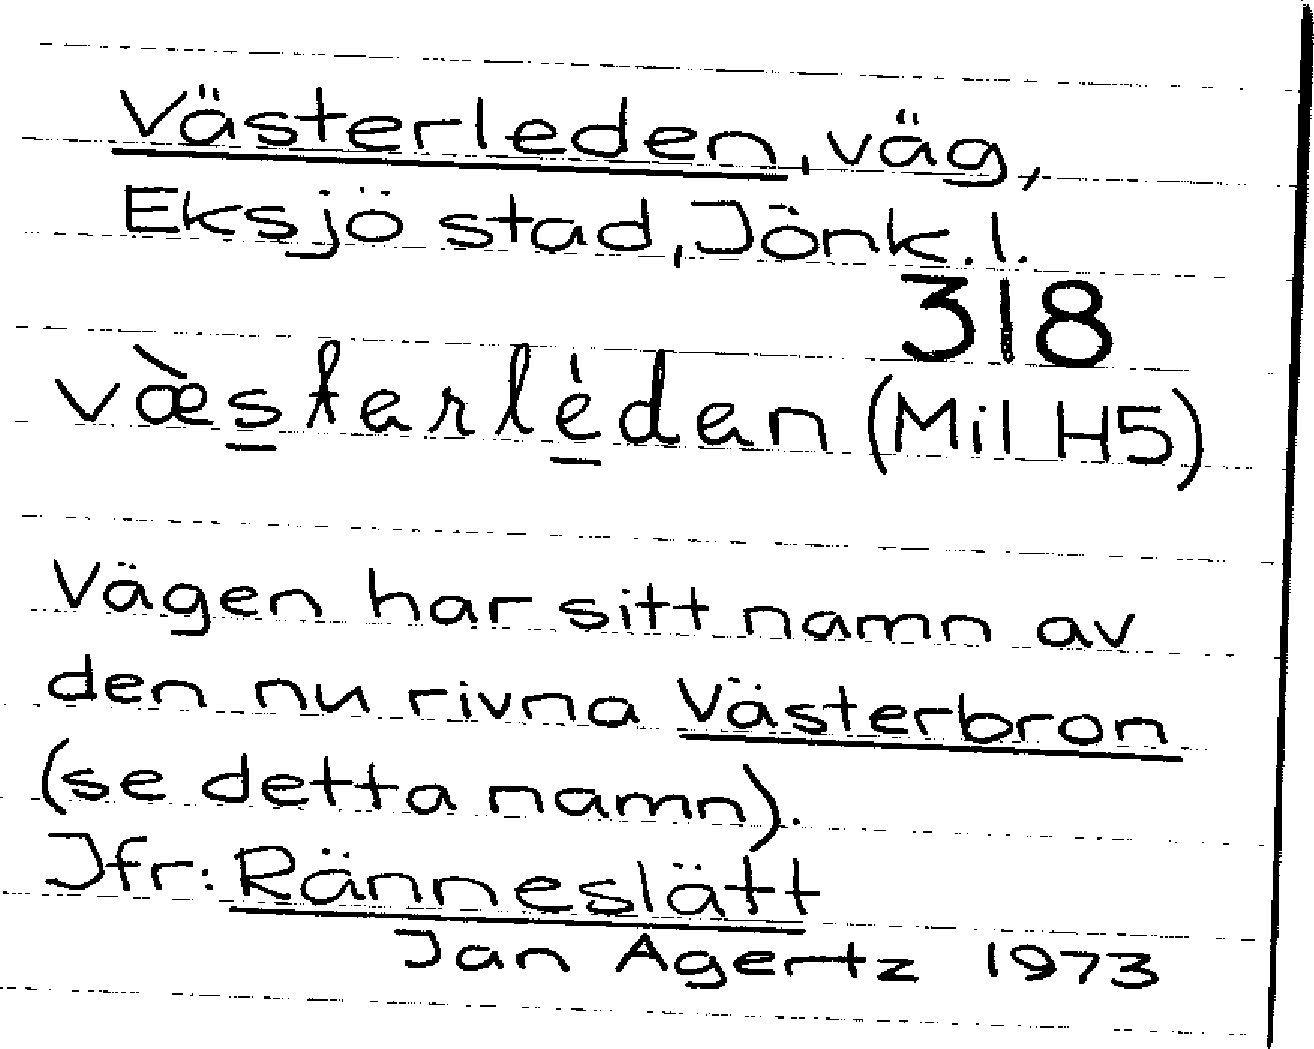 Västerleden, väg,
Eksjö stad, Jönk. l.
318
væ̀s̲terlé̲den (Mil H5)
Vägen har sitt namn av
den nu rivna Västerbron
(se detta namn).
Jfr: Ränneslätt
Jan Agertz 1973